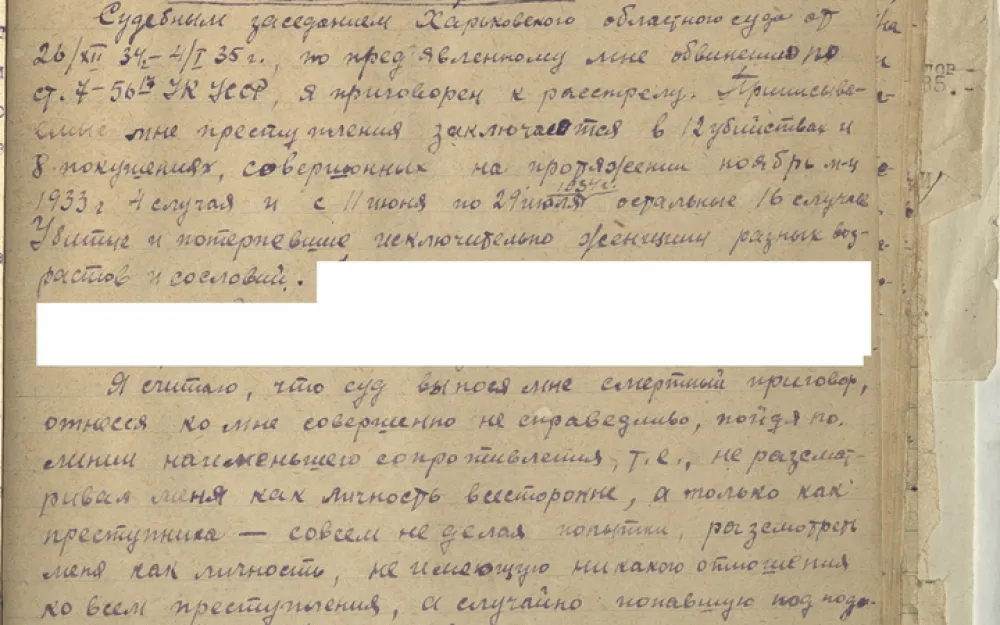 Судебным заседанием Харьковского областного суда от
26/XII 34г.–4/I 35г., по пред'явленному мне обвинению по
ст. 7–56¹⁷ УК УССР, я приговорен к расстрелу. Приписывае-
емые мне преступления заключаются в 12 убийствах и
8 покушениях, совершонных на протяжении ноябрь м-ц
1933г 4 случая и с 11 июня по 29 июля 1934г. остальные 16 случаев
Убитые и потерпевшие исключительно женщины разных воз-
растов и сословий.
Я считаю, что суд вынося мне смертный приговор,
отнесся ко мне совершенно не справедливо, пойдя по
линии наименьшего сопротивления, т.е., не разсмат-
ривая меня как личность всесторонне, а только как
преступника — совсем не делая попытки, разсмотреть
меня как личность, не имеющую никакого отношения
ко всем преступления, а случайно попавшую под подо-